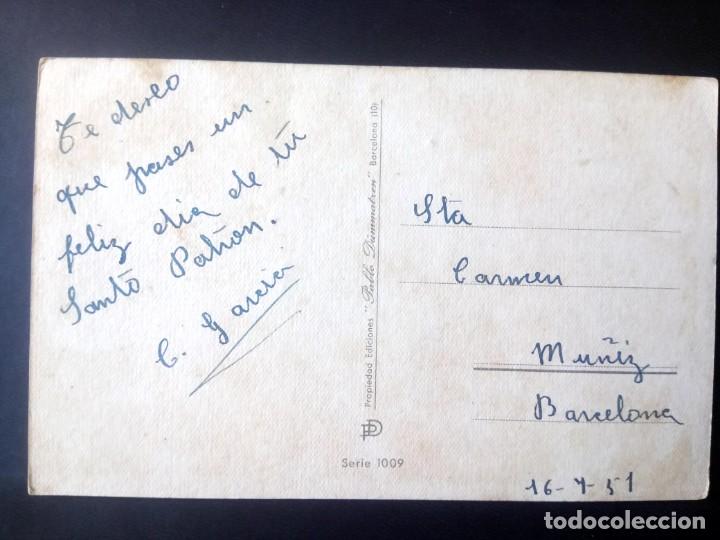 Te deseo
que pases un
feliz dia de tú
Santo Patron.
C. Garcia
Propiedad Ediciones "Pablo Dümmatzen" Barcelona (10)
Serie 1009
Sta
Carmen
Muñiz
Barcelona
16-7-51
todocoleccion